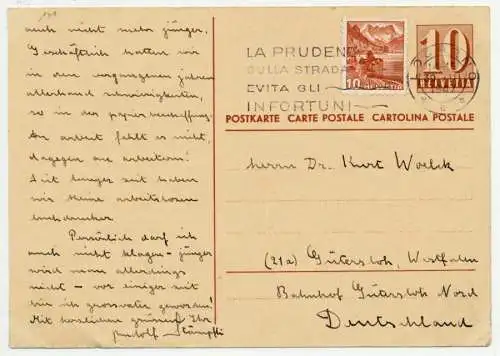 auch nicht mehr jünger.
Geschäftlich hatten wir
in den vergangenen Jahren
allerhand Schwierigkeiten,
so in der Papierbeschaffung.
An Arbeit fehlt es nicht,
dagegen an Arbeitern!
Seit langer Zeit haben
wir keine arbeitslosen
Buchdrucker.
Persönlich darf ich
auch nicht klagen - jünger
wird man allerdings
nicht - vor einiger Zeit
bin ich Grossvater geworden!
Mit herzlichen Grüssen Ihr
Rudolf Stämpfli
LA PRUDENZ
SULLA STRADA
EVITA GLI
INFORTUNI
10
10
HELVETIA
POSTKARTE CARTE POSTALE CARTOLINA POSTALE
Herrn Dr. Kurt Woelck
(21a) Gütersloh, Westfalen
Bahnhof Gütersloh Nord
Deutschland